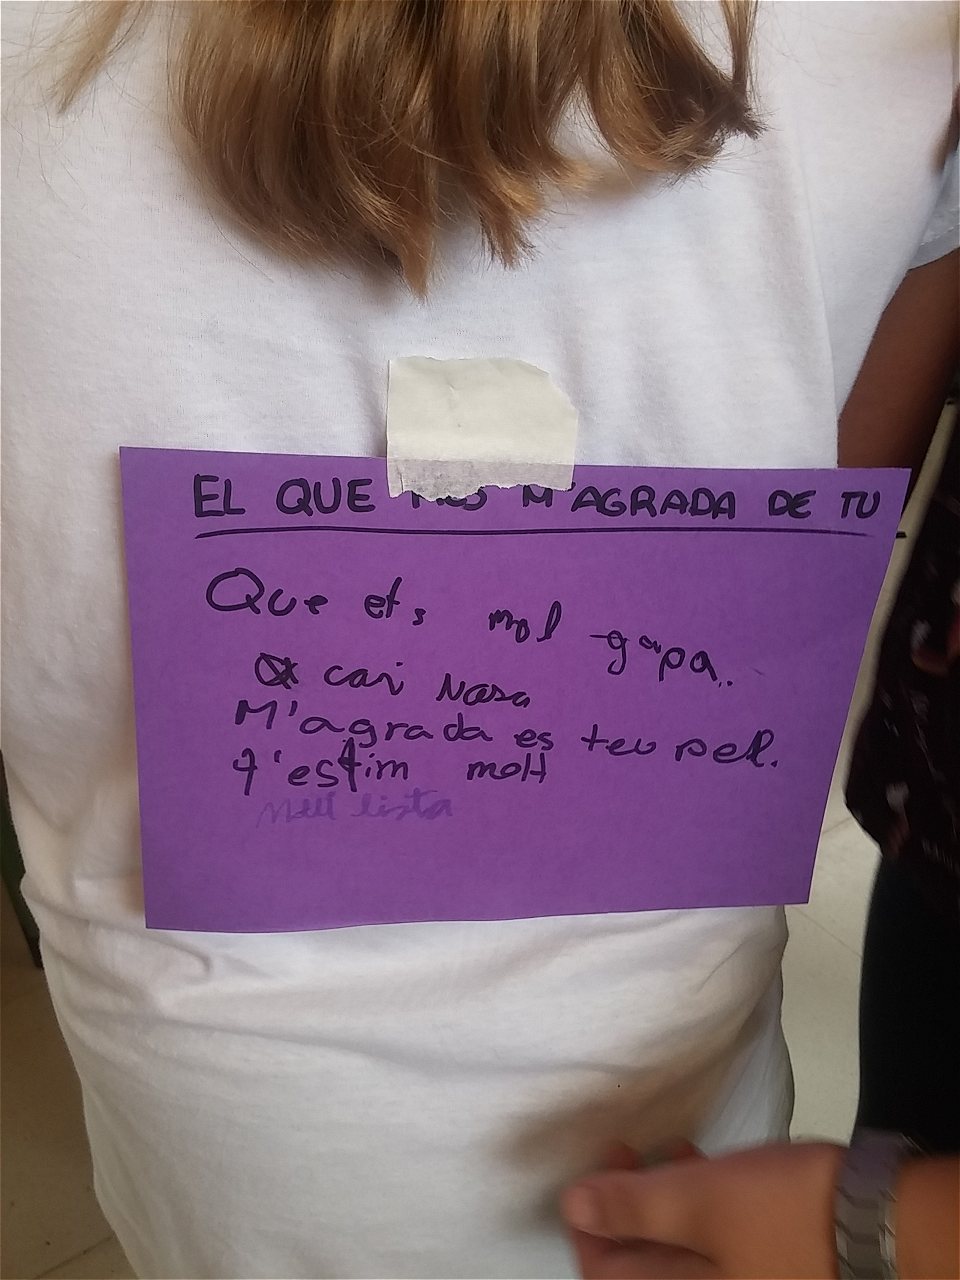 EL QUE MÉS M'AGRADA DE TU
Que ets mol guapa..
cari Nosa
M'agrada es teu pel.
T'estim molt
Molt lista